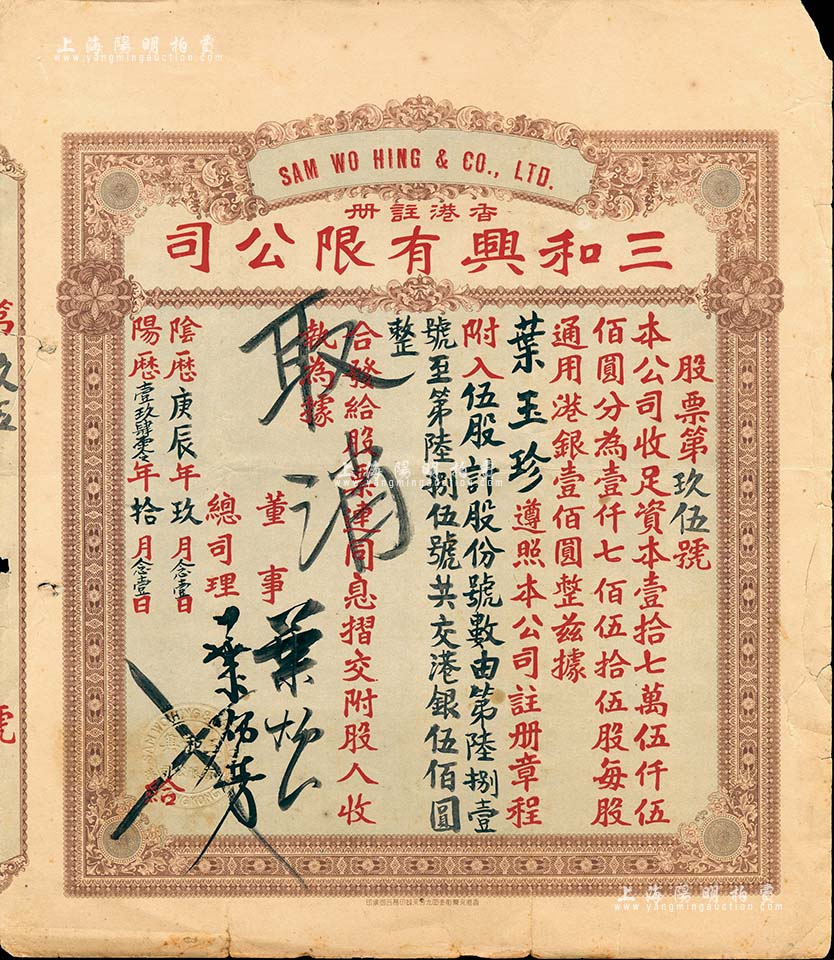 上海陽明拍賣
www.yangmingauction.com
SAM WO HING & CO., LTD.
香港註册
三和興有限公司
股票第玖伍號
本公司收足資本壹拾七萬伍仟伍
佰圓分為壹仟七佰伍拾伍股每股
通用港銀壹佰圓整兹據
葉玉珍遵照本公司註册章程
附入伍股計股份號數由第陸捌壹
號至第陸捌伍號共交港銀伍佰圓
整
合發給股票連同息摺交附股人收
執為據
取消
董事
總司理
陰歷庚辰年玖月念壹日
陽歷壹玖肆零年拾月念壹日
給
上海陽明拍賣
www.yangmingauction.com
上海陽明拍賣
www.yangmingauction.com